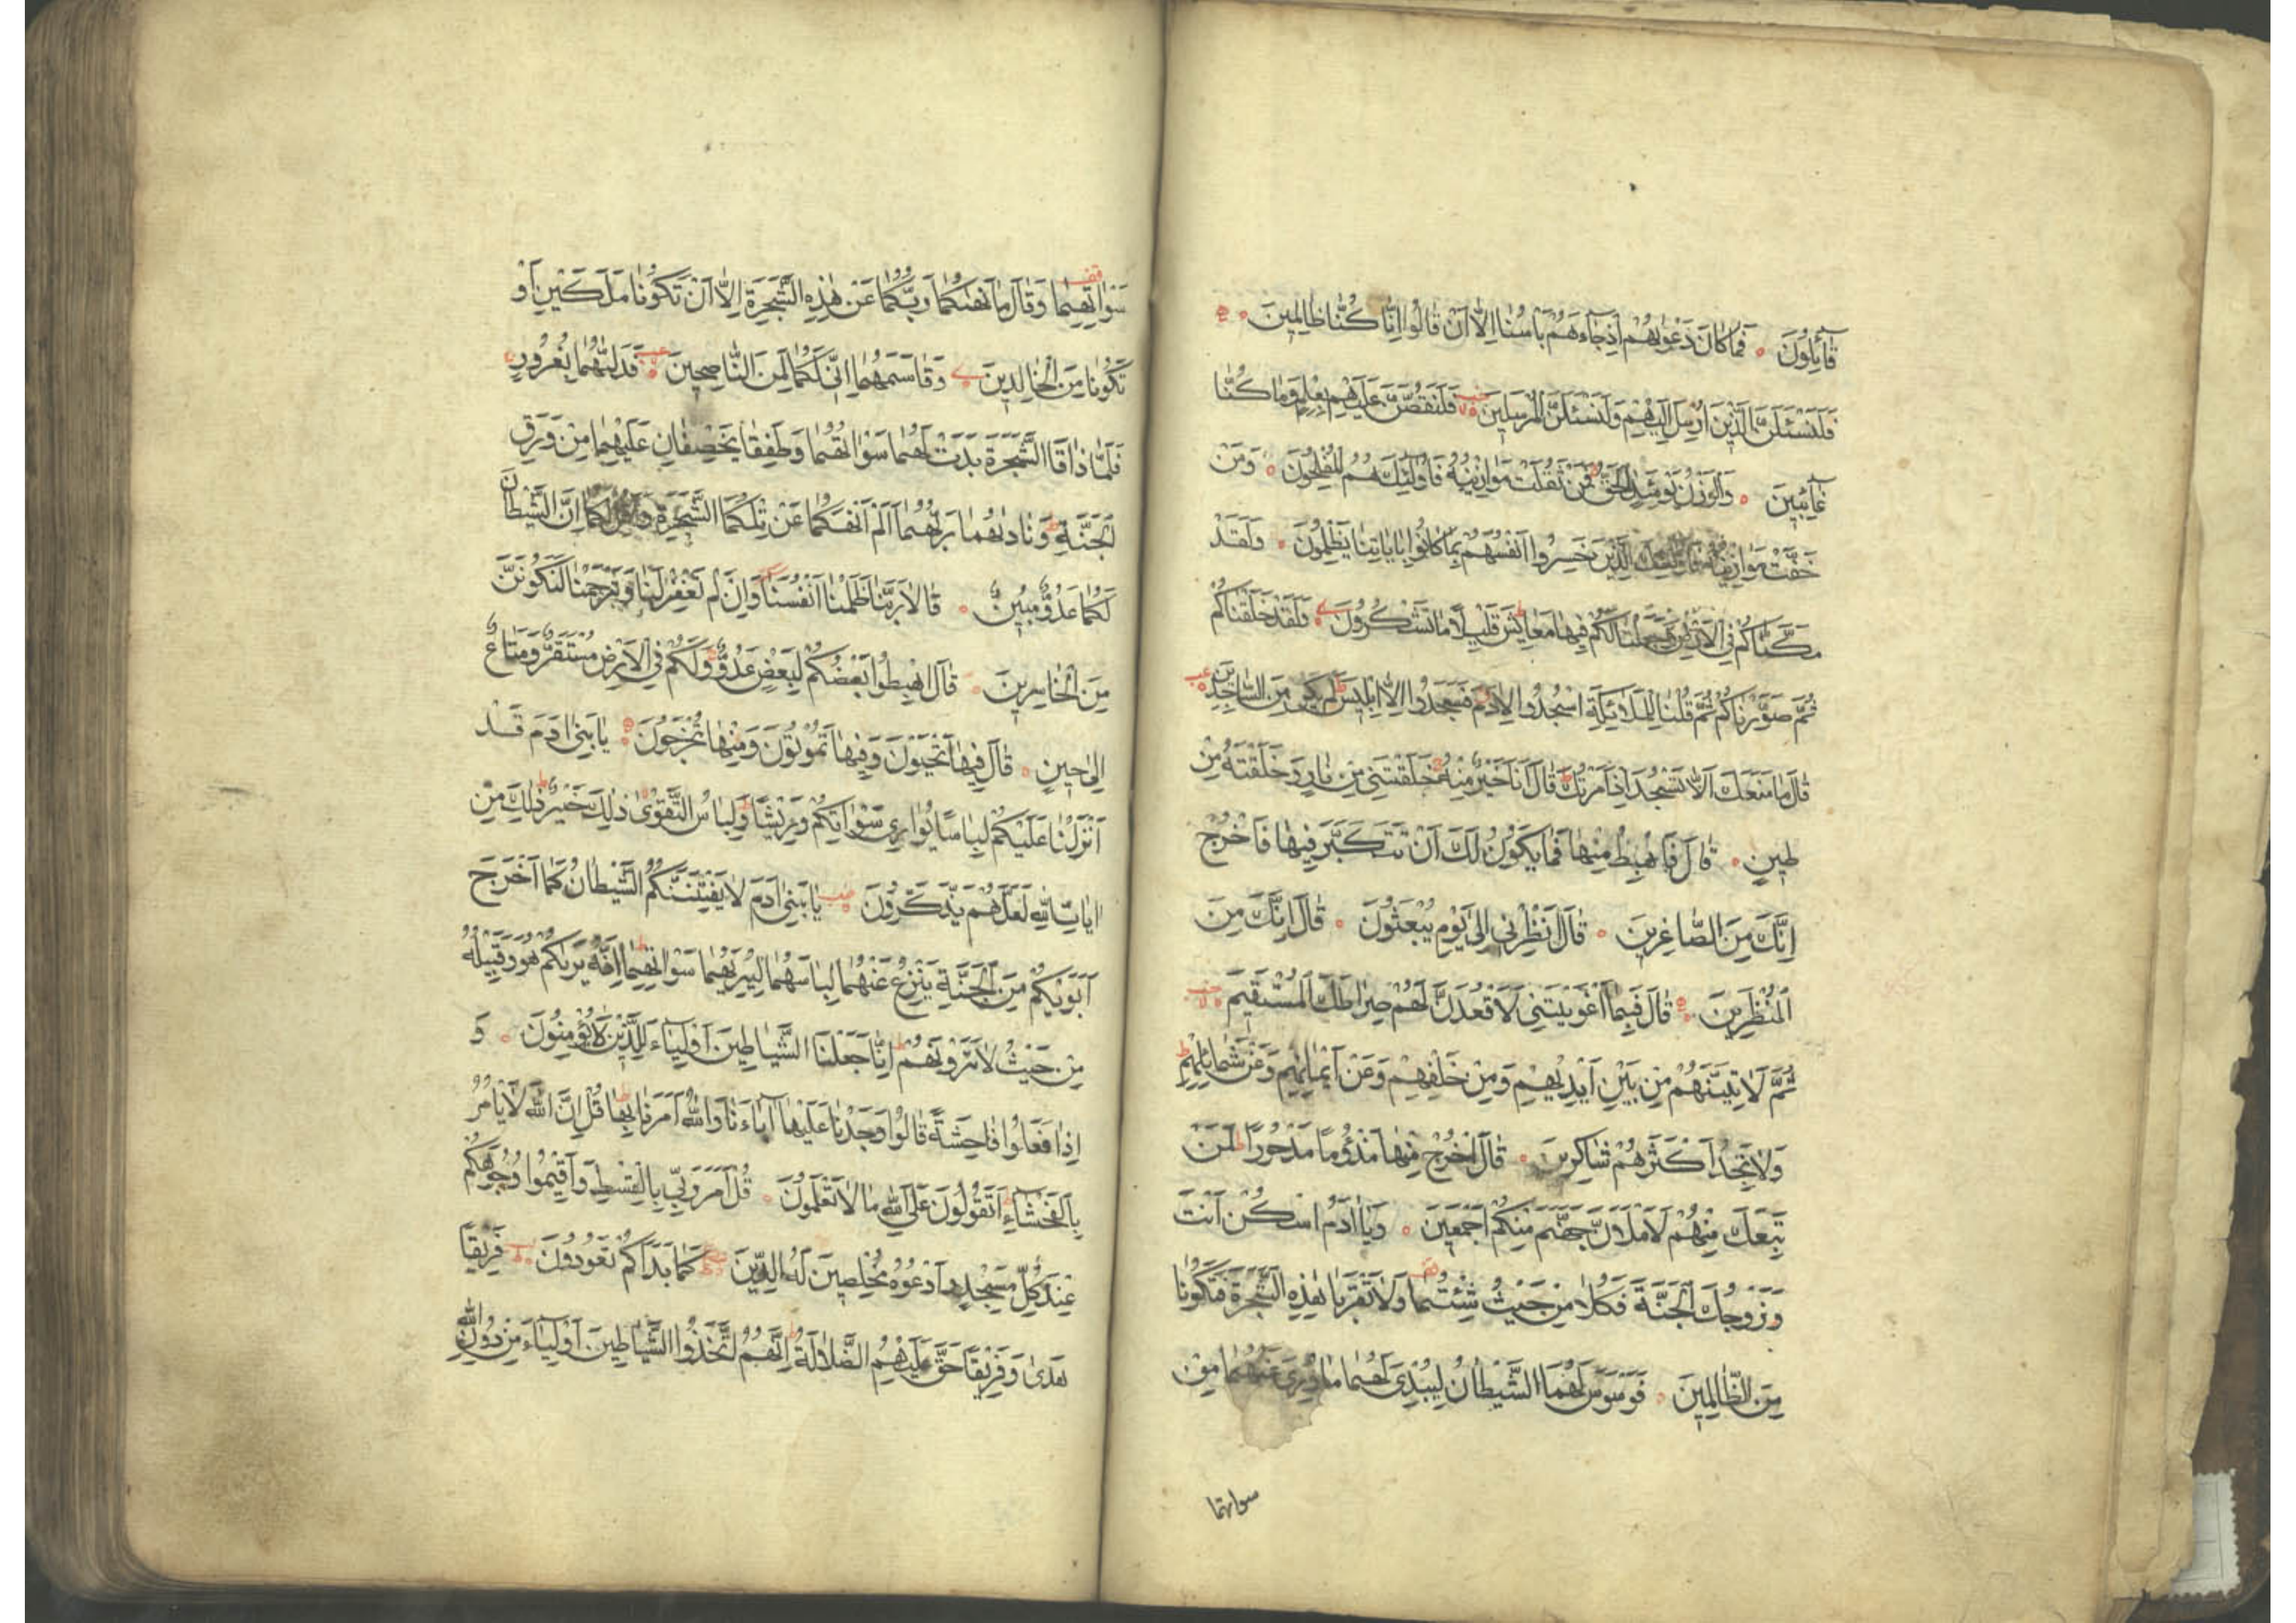 قَآئِلُونَ فَمَا كَانَ دَعْوٰيهُمْ اِذْ جَآءَهُمْ بَاْسُنَا اِلَّا اَنْ قَالُوا اِنَّا كُنَّا ظَالِمِينَ
فَلَنَسْئَلَنَّ الَّذِينَ اُرْسِلَ اِلَيْهِمْ وَلَنَسْئَلَنَّ الْمُرْسَلِينَ فَلَنَقُصَّنَّ عَلَيْهِمْ بِعِلْمٍ وَمَا كُنَّا
غَآئِبِينَ وَالْوَزْنُ يَوْمَئِذٍ الْحَقُّ فَمَنْ ثَقُلَتْ مَوَازِينُهُ فَاُولٰئِكَ هُمُ الْمُفْلِحُونَ وَمَنْ
خَفَّتْ مَوَازِينُهُ فَاُولٰئِكَ الَّذِينَ خَسِرُوا اَنْفُسَهُمْ بِمَا كَانُوا بِاٰيَاتِنَا يَظْلِمُونَ وَلَقَدْ
مَكَّنَّاكُمْ فِي الْاَرْضِ وَجَعَلْنَا لَكُمْ فِيهَا مَعَايِشَ قَلِيلًا مَا تَشْكُرُونَ وَلَقَدْ خَلَقْنَاكُمْ
ثُمَّ صَوَّرْنَاكُمْ ثُمَّ قُلْنَا لِلْمَلَائِكَةِ اسْجُدُوا لِاٰدَمَ فَسَجَدُوا اِلَّا اِبْلِيسَ لَمْ يَكُنْ مِنَ السَّاجِدِينَ
قَالَ مَا مَنَعَكَ اَلَّا تَسْجُدَ اِذْ اَمَرْتُكَ قَالَ اَنَا خَيْرٌ مِنْهُ خَلَقْتَنِي مِنْ نَارٍ وَخَلَقْتَهُ مِنْ
طِينٍ قَالَ فَاهْبِطْ مِنْهَا فَمَا يَكُونُ لَكَ اَنْ تَتَكَبَّرَ فِيهَا فَاخْرُجْ
اِنَّكَ مِنَ الصَّاغِرِينَ قَالَ اَنْظِرْنِي اِلٰى يَوْمِ يُبْعَثُونَ قَالَ اِنَّكَ مِنَ
الْمُنْظَرِينَ قَالَ فَبِمَا اَغْوَيْتَنِي لَاَقْعُدَنَّ لَهُمْ صِرَاطَكَ الْمُسْتَقِيمَ
ثُمَّ لَاٰتِيَنَّهُمْ مِنْ بَيْنِ اَيْدِيهِمْ وَمِنْ خَلْفِهِمْ وَعَنْ اَيْمَانِهِمْ وَعَنْ شَمَائِلِهِمْ
وَلَا تَجِدُ اَكْثَرَهُمْ شَاكِرِينَ قَالَ اخْرُجْ مِنْهَا مَذْؤُمًا مَدْحُورًا لَمَنْ
تَبِعَكَ مِنْهُمْ لَاَمْلَاَنَّ جَهَنَّمَ مِنْكُمْ اَجْمَعِينَ وَيَا اٰدَمُ اسْكُنْ اَنْتَ
وَزَوْجُكَ الْجَنَّةَ فَكُلَا مِنْ حَيْثُ شِئْتُمَا وَلَا تَقْرَبَا هٰذِهِ الشَّجَرَةَ فَتَكُونَا
مِنَ الظَّالِمِينَ فَوَسْوَسَ لَهُمَا الشَّيْطَانُ لِيُبْدِيَ لَهُمَا مَا وُرِيَ عَنْهُمَا مِنْ
سواتهما
سَوْاٰتِهِمَا وَقَالَ مَا نَهٰيكُمَا رَبُّكُمَا عَنْ هٰذِهِ الشَّجَرَةِ اِلَّا اَنْ تَكُونَا مَلَكَيْنِ اَوْ
تَكُونَا مِنَ الْخَالِدِينَ وَقَاسَمَهُمَا اِنِّي لَكُمَا لَمِنَ النَّاصِحِينَ فَدَلّٰيهُمَا بِغُرُورٍ
فَلَمَّا ذَاقَا الشَّجَرَةَ بَدَتْ لَهُمَا سَوْاٰتُهُمَا وَطَفِقَا يَخْصِفَانِ عَلَيْهِمَا مِنْ وَرَقِ
الْجَنَّةِ وَنَادٰيهُمَا رَبُّهُمَا اَلَمْ اَنْهَكُمَا عَنْ تِلْكُمَا الشَّجَرَةِ وَاَقُلْ لَكُمَا اِنَّ الشَّيْطَانَ
لَكُمَا عَدُوٌّ مُبِينٌ قَالَا رَبَّنَا ظَلَمْنَا اَنْفُسَنَا وَاِنْ لَمْ تَغْفِرْ لَنَا وَتَرْحَمْنَا لَنَكُونَنَّ
مِنَ الْخَاسِرِينَ قَالَ اهْبِطُوا بَعْضُكُمْ لِبَعْضٍ عَدُوٌّ وَلَكُمْ فِي الْاَرْضِ مُسْتَقَرٌّ وَمَتَاعٌ
اِلٰى حِينٍ قَالَ فِيهَا تَحْيَوْنَ وَفِيهَا تَمُوتُونَ وَمِنْهَا تُخْرَجُونَ يَا بَنِي اٰدَمَ قَدْ
اَنْزَلْنَا عَلَيْكُمْ لِبَاسًا يُوَارِي سَوْاٰتِكُمْ وَرِيشًا وَلِبَاسُ التَّقْوٰى ذٰلِكَ خَيْرٌ ذٰلِكَ مِنْ
اٰيَاتِ اللّٰهِ لَعَلَّهُمْ يَذَّكَّرُونَ يَا بَنِي اٰدَمَ لَا يَفْتِنَنَّكُمُ الشَّيْطَانُ كَمَا اَخْرَجَ
اَبَوَيْكُمْ مِنَ الْجَنَّةِ يَنْزِعُ عَنْهُمَا لِبَاسَهُمَا لِيُرِيَهُمَا سَوْاٰتِهِمَا اِنَّهُ يَرٰيكُمْ هُوَ وَقَبِيلُهُ
مِنْ حَيْثُ لَا تَرَوْنَهُمْ اِنَّا جَعَلْنَا الشَّيَاطِينَ اَوْلِيَآءَ لِلَّذِينَ لَا يُؤْمِنُونَ وَ
اِذَا فَعَلُوا فَاحِشَةً قَالُوا وَجَدْنَا عَلَيْهَا اٰبَآءَنَا وَاللّٰهُ اَمَرَنَا بِهَا قُلْ اِنَّ اللّٰهَ لَا يَاْمُرُ
بِالْفَحْشَآءِ اَتَقُولُونَ عَلَى اللّٰهِ مَا لَا تَعْلَمُونَ قُلْ اَمَرَ رَبِّي بِالْقِسْطِ وَاَقِيمُوا وُجُوهَكُمْ
عِنْدَ كُلِّ مَسْجِدٍ وَادْعُوهُ مُخْلِصِينَ لَهُ الدِّينَ كَمَا بَدَاَكُمْ تَعُودُونَ فَرِيقًا
هَدٰى وَفَرِيقًا حَقَّ عَلَيْهِمُ الضَّلَالَةُ اِنَّهُمُ اتَّخَذُوا الشَّيَاطِينَ اَوْلِيَآءَ مِنْ دُونِ اللّٰهِ